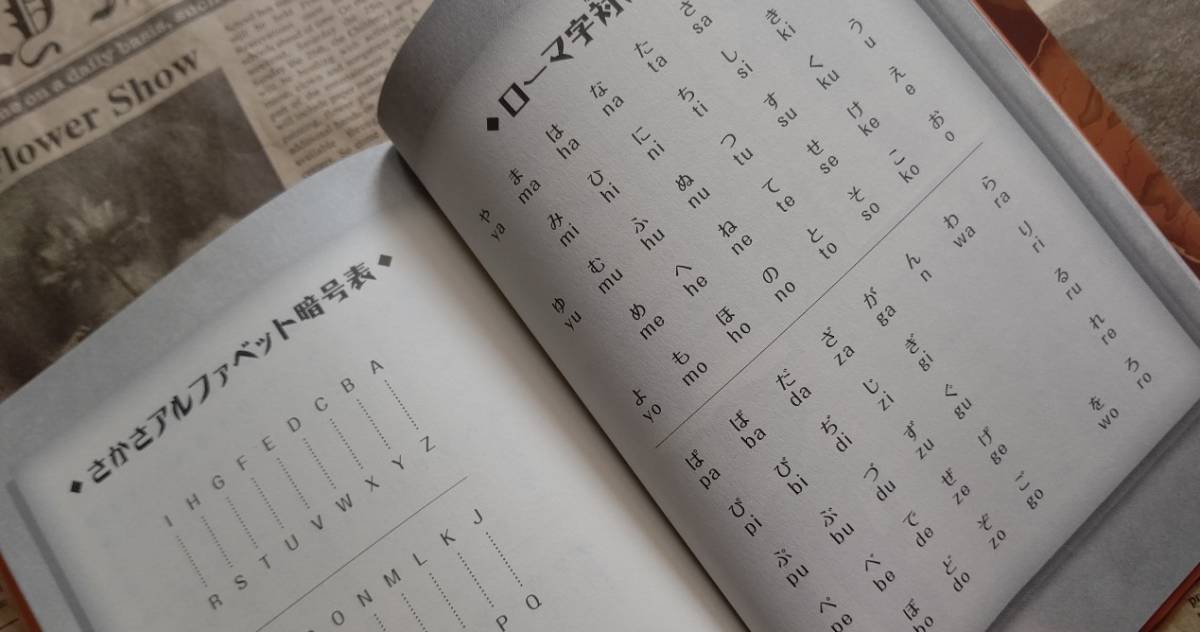 The Flower Show
◆さかさアルファベット暗号表◆
I H G F E D C B A
R S T U V W X Y Z
O N M L K J
P Q
◆ローマ字対
や ま は な た さ
ya ma ha na ta sa
み ひ に ち し き
mi hi ni ti si ki
ゆ む ふ ぬ つ す く う
yu mu hu nu tu su ku u
め へ ね て せ け え
me he ne te se ke e
よ も ほ の と そ こ お
yo mo ho no to so ko o
ぱ ば だ ざ が ん わ ら
pa ba da za ga n wa ra
ぴ び ぢ じ ぎ り
pi bi di zi gi ri
ぷ ぶ づ ず ぐ る
pu bu du zu gu ru
ぺ べ で ぜ げ れ
pe be de ze ge re
ぼ ど ぞ ご を ろ
bo do zo go wo ro